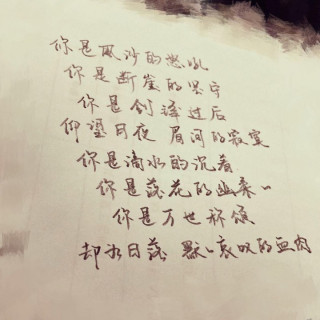 你是风沙的怒吼
你是断崖的坚守
你是创译过后
仰望日夜 眉河的寂寞
你是滴水的沉着
你是落花的幽柔
你是万世称颂
却为日落 默默哀叹的血肉